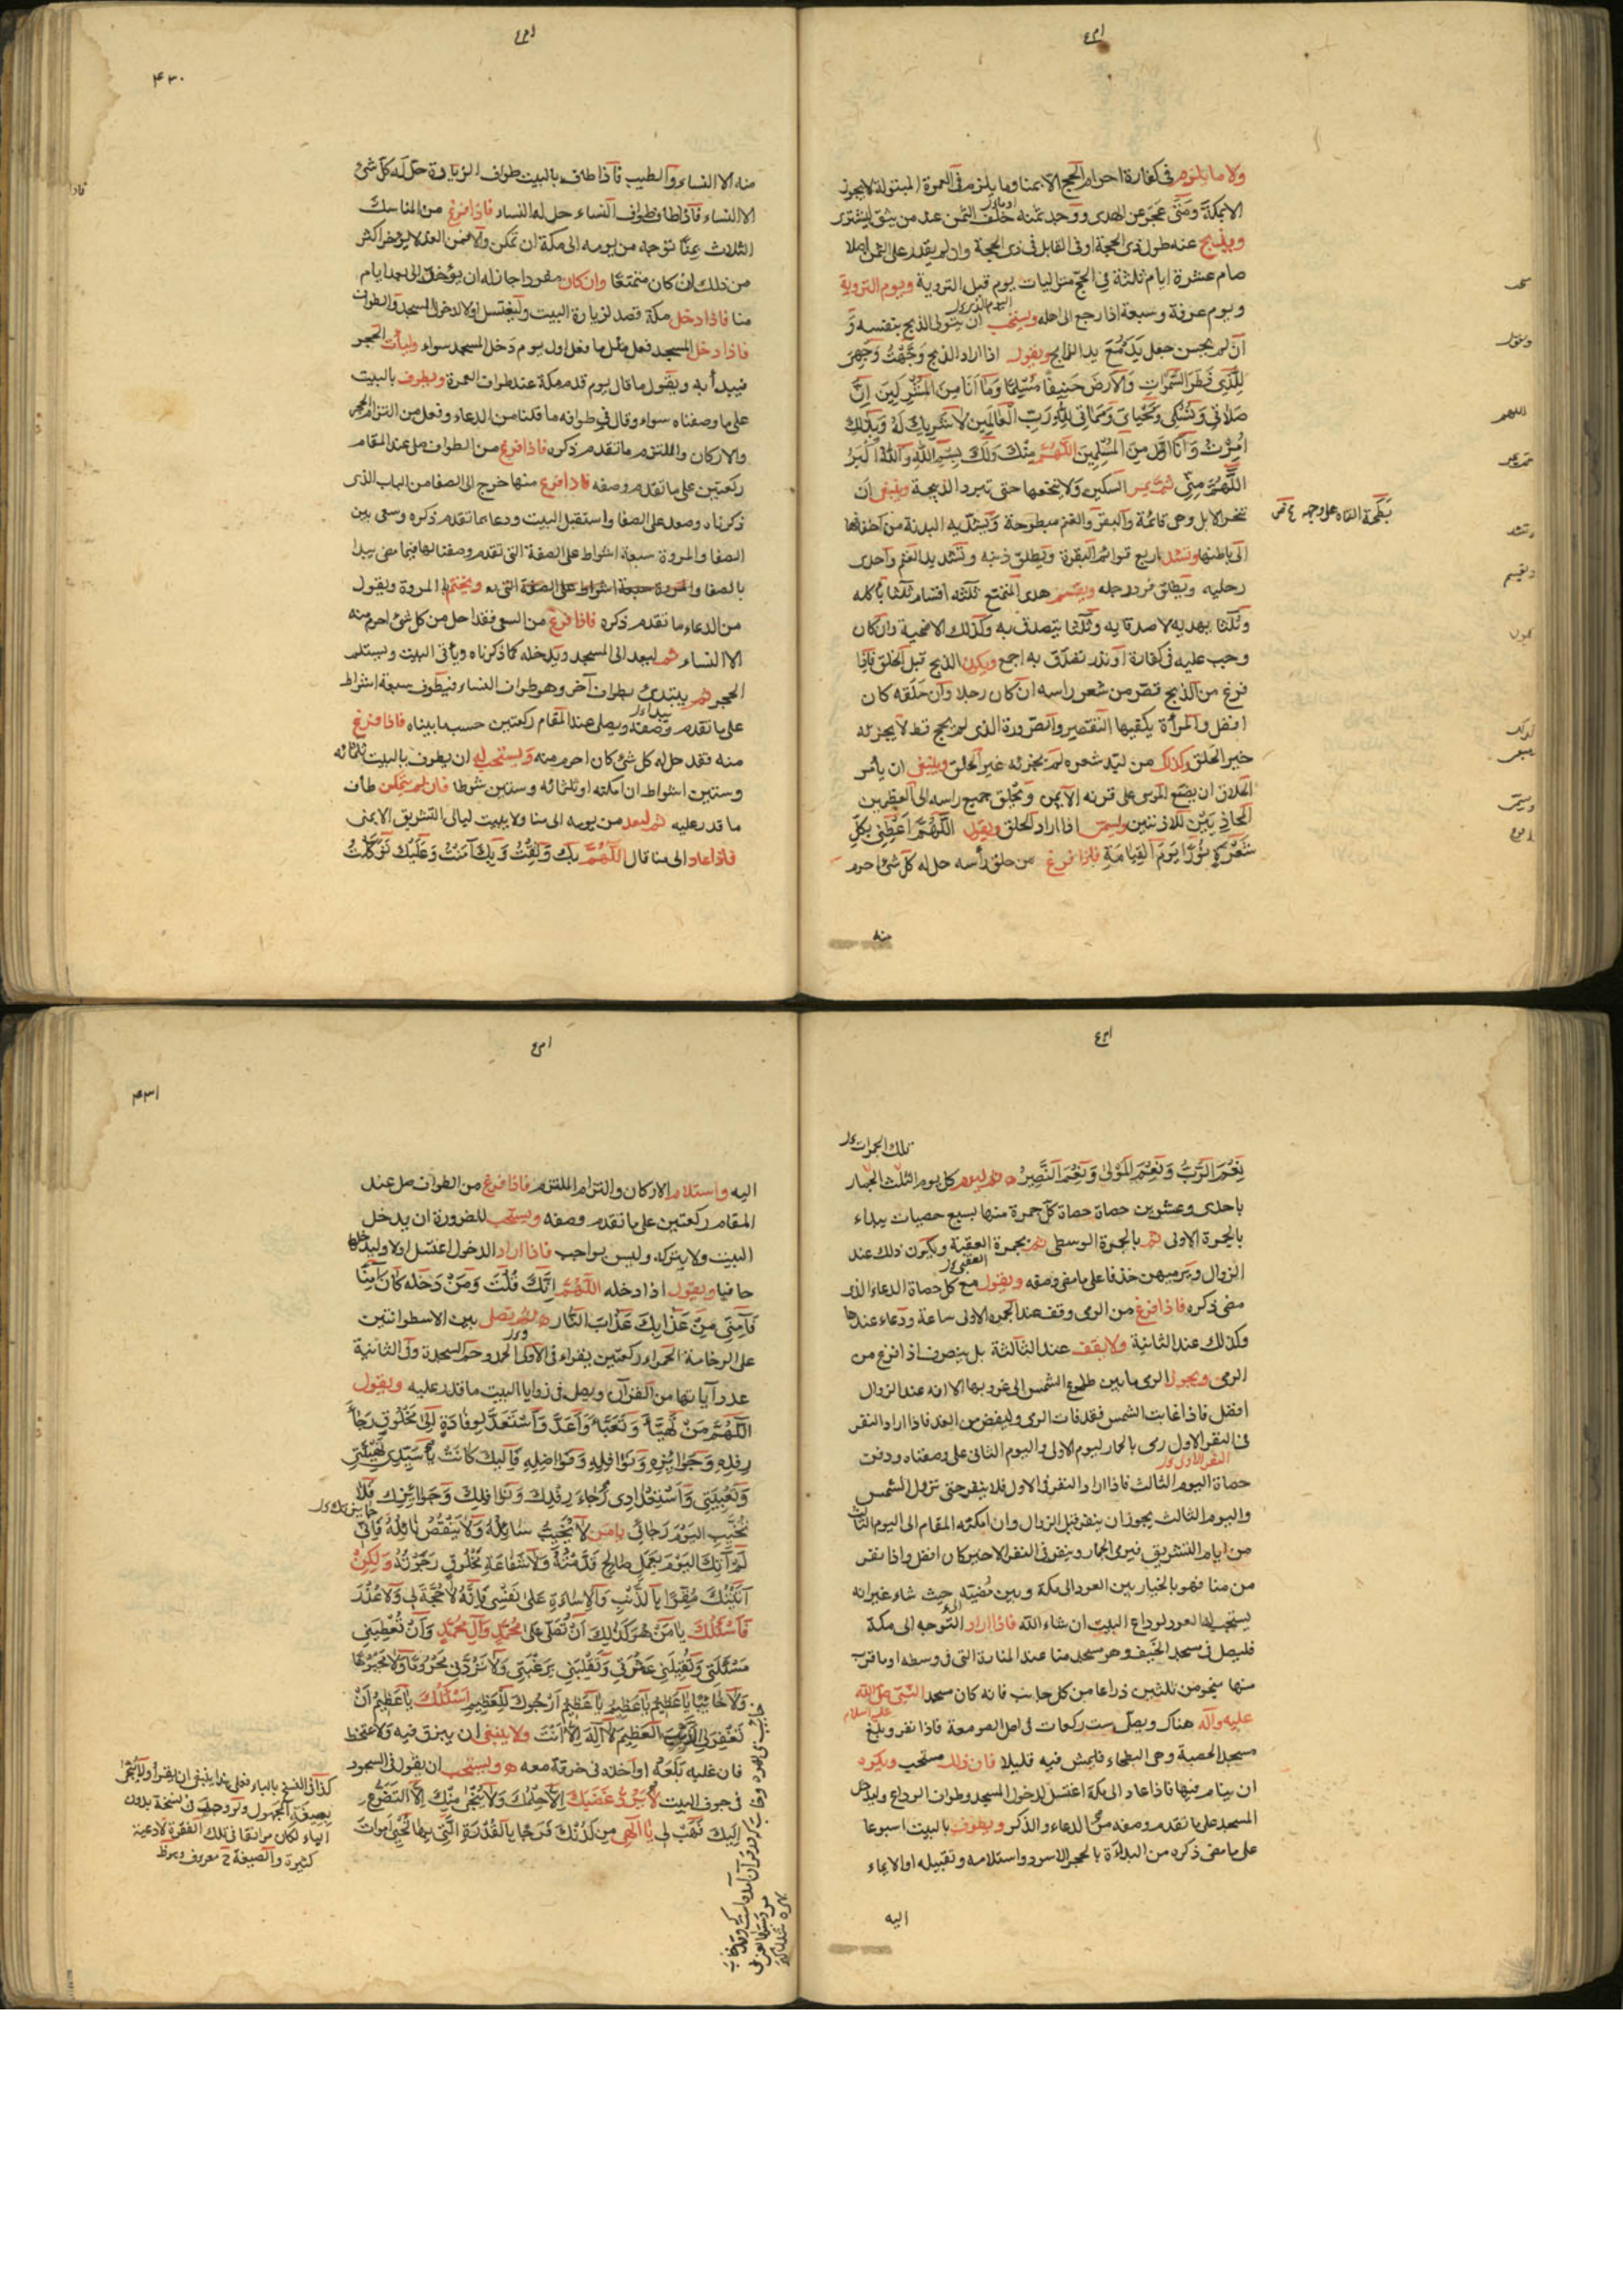 ولا ما يلزم في كفارة احرام الحج الا بمنا وما يلزم في العمرة المبتولة لا يجوز
الا بمكة ومتى عجز عن الهدي ووجد ثمنه خلف الثمن عند من يثق ليشتري
ويذبح عنه طول ذي الحجة او في القابل في ذي الحجة وان لم يقدر على الثمن اصلا
صام عشرة ايام ثلثة في الحج متواليات يوم قبل التروية ويوم التروية
ويوم عرفة وسبعة اذا رجع الى اهله ويستحب ان يتولى الذبح بنفسه و
ان لم يحسن جعل يده مع يد الذابح ويقول اذا اراد الذبح وَجَّهْتُ وَجْهِيَ
لِلَّذِي فَطَرَ السَّمٰوَاتِ وَالْاَرْضَ حَنِيفًا مُسْلِمًا وَمَا اَنَا مِنَ الْمُشْرِكِينَ اِنَّ
صَلَاتِي وَنُسُكِي وَمَحْيَايَ وَمَمَاتِي لِلّٰهِ رَبِّ الْعَالَمِينَ لَا شَرِيكَ لَهُ وَبِذٰلِكَ
اُمِرْتُ وَاَنَا مِنَ الْمُسْلِمِينَ اَللّٰهُمَّ مِنْكَ وَلَكَ بِسْمِ اللّٰهِ وَاللّٰهُ اَكْبَرُ
اَللّٰهُمَّ مِنِّي ثم يمر السكين ولا ينخعها حتى تبرد الذبيحة وينبغي ان
تنحر الابل وهي قائمة والبقر والغنم مبطوحة ويشد يد البدنة من اخفافها
الى باطنها ويشد اربع قوائم البقرة ويطلق ذنبه وتشد يد الغنم واحدى
رجليه ويطلق فرد رجله ويقسم هدي المتمتع ثلثة اقسام ثلثا ياكله
وثلثا يهديه لاصدقايه وثلثا يتصدق به وكذلك الاضحية وان كان
وجب عليه في كفارة او نذر تصدق به اجمع ويكون الذبح قبل الحلق فاذا
فرغ من الذبح قصر من شعر راسه ان كان رجلا وان حلقه كان
افضل والمرأة يكفيها التقصير والصرورة الذي لم يحج قط لا يجزئه
غير الحلق وكذلك من لبد شعره لم يجزئه غير الحلق وينبغي ان يأمر
الحلاق ان يضع الموسى على قرنه الايمن ويحلق جميع راسه الى العظمين
المحاذيين للاذنين ويسمي اذا اراد الحلق ويقول اَللّٰهُمَّ اَعْطِنِي بِكُلِّ
شَعْرَةٍ نُورًا يَوْمَ الْقِيَامَةِ فاذا فرغ من حلق رأسه حل له كل شئ احرم
منه
۴۳۰
منه الا النساء والطيب فاذا طاف بالبيت طواف الزيارة حل له كل شئ
الا النساء فاذا طاف طواف النساء حل له النساء فاذا فرغ من المناسك
الثلاث بمنا توجه من يومه الى مكة ان تمكن والا فمن الغد لا يؤخر اكثر
من ذلك ان كان متمتعا وان كان مفردا جاز له ان يؤخر الى بعد ايام
منا فاذا دخل مكة قصد لزيارة البيت وليغتسل اولا لدخول المسجد والطواف
فاذا دخل المسجد فعل مثل ما فعل اول يوم دخل المسجد سواء وليأت الحجر
فيبدأ به ويقول ما قال يوم قدم مكة عند طواف العمرة ويطوف بالبيت
على ما وصفناه سواء وقال في طوافه ما قلنا من الدعاء وفعل من التزام الحجر
والاركان والملتزم ما تقدم ذكره فاذا فرغ من الطواف صلى عند المقام
ركعتين على ما تقدم وصفه فاذا فرغ منها خرج الى الصفا من الباب الذي
ذكرناه وصعد على الصفا واستقبل البيت ودعا بما تقدم ذكره وسعى بين
الصفا والمروة سبعة اشواط على الصفة التي تقدم وصفنا لها فيما مضى يبدا
بالصفا ويختم بالمروة ويقول
من الدعاء ما تقدم ذكره فاذا فرغ من السعي فقد احل من كل شئ احرم منه
الا النساء ثم ليعد الى المسجد ويدخله كما ذكرناه ويأتي البيت ويستلم
الحجر ثم يبتدئ بطواف آخر وهو طواف النساء فيطوف سبعة اشواط
على ما تقدم وصفه ويصلي عند المقام ركعتين حسب ما بيناه فاذا فرغ
منه فقد حل له كل شئ كان احرم منه ويستحب له ان يطوف بالبيت ثلثمائه
وستين اسبوعا ان امكنه او ثلثمائه وستين شوطا فان لم يتمكن طاف
ما قدر عليه ثم ليعد من يومه الى منا ولا يبيت ليالي التشريق الا بمنى
فاذا عاد الى منا قال اَللّٰهُمَّ بِكَ وَثِقْتُ وَبِكَ آمَنْتُ وَعَلَيْكَ تَوَكَّلْتُ
تلك الجمرات
نِعْمَ الرَّبُّ وَنِعْمَ الْمَوْلٰى وَنِعْمَ النَّصِيرُ ثم ليرم كل يوم الثلث الجمار
باحدى وعشرين حصاة كل جمرة منها بسبع حصيات يبداء
بالجمرة الاولى ثم بالجمرة الوسطى ثم بجمرة العقبة ويكون ذلك عند
الزوال ويرميهن خذفا على ما مضى وصفه ويقول مع كل حصاة الدعاء الذي
مضى ذكره فاذا فرغ من الرمي وقف عند الجمرة الاولى ساعة ودعاء عندها
وكذلك عند الثانية ولا يقف عند الثالثة بل ينصرف اذا فرغ من
الرمي ويجوز الرمي ما بين طلوع الشمس الى غروبها الا انه عند الزوال
افضل فاذا غابت الشمس فقد فات الرمي وليقض من الغد فاذا اراد النفر
في النفر الاول رمى بالجمار ليوم الاول واليوم الثاني على وصفناه ودفن
حصاة اليوم الثالث فاذا اراد النفر في الاول فلا ينفر حتى تزول الشمس
واليوم الثالث يجوز ان ينفر قبل الزوال وان امكنه المقام الى اليوم الثالث
من ايام التشريق فيرمي الجمار وينفر في النفر الاخير كان افضل واذا نفر
من منا فهو بالخيار بين العود الى مكة وبين مضيه حيث شاء غير انه
يستحب له العود لوداع البيت ان شاء الله فاذا اراد التوجه الى مكة
فليصل في مسجد الخيف وهو مسجد منا عند المنارة التي في وسطه او ما قرب
منها بنحو من ثلثين ذراعا من كل جانب فانه كان مسجد النبي صلى الله
عليه وآله هناك ويصل ست ركعات في اصل الصومعة فاذا نفر وبلغ
مسجد الحصبة وهي البطحاء فليمش فيه قليلا فان ذلك مستحب ويكره
ان ينام فيها فاذا عاد الى مكة اغتسل لدخول المسجد وطواف الوداع وليدخل
المسجد على ما تقدم وصفه من الدعاء والذكر ويطوف بالبيت اسبوعا
على ما مضى ذكره من البدأة بالحجر الاسود واستلامه وتقبيله او الايماء
اليه
۴۳۱
اليه واستلام الاركان والتزام الملتزم فاذا فرغ من الطواف صل عند
المقام ركعتين على ما تقدم وصفه ويستحب للضرورة ان يدخل
البيت ولا يتركه وليس بواجب فاذا اراد الدخول اغتسل اولا وليدخله
حافيا ويقول اذا دخله اَللّٰهُمَّ اِنَّكَ قُلْتَ وَمَنْ دَخَلَهُ كَانَ آمِنًا
فَآمِنِّي مِنْ عَذَابِكَ عَذَابِ النَّارِ ثم تصلى بين الاسطوانتين
على الرخامة الحمراء ركعتين يقراء في الاولى الحمد وحم السجدة وفي الثانية
عدد آياتها من القرآن ويصل في زوايا البيت ما قدر عليه ويقول
اَللّٰهُمَّ مَنْ تَهَيَّأَ وَتَعَبَّأَ وَاَعَدَّ وَاسْتَعَدَّ لِوِفَادَةٍ اِلٰى مَخْلُوقٍ رَجَاءَ
رِفْدِهِ وَجَوَائِزِهِ وَنَوَافِلِهِ وَفَوَاضِلِهِ فَاِلَيْكَ كَانَتْ يَا سَيِّدِي تَهْيِئَتِي
وَتَعْبِيَتِي وَاسْتِعْدَادِي رَجَاءَ رِفْدِكَ وَنَوَافِلِكَ وَجَوَائِزِكَ فَلَا
تُخَيِّبِ الْيَوْمَ رَجَائِي يَا مَنْ لَا يَخِيبُ سَائِلُهُ وَلَا يَنْقُصُ نَائِلُهُ فَاِنِّي
لَمْ آتِكَ الْيَوْمَ بِعَمَلٍ صَالِحٍ قَدَّمْتُهُ وَلَا شَفَاعَةِ مَخْلُوقٍ رَجَوْتُهُ وَلٰكِنْ
اَتَيْتُكَ مُقِرًّا بِالذَّنْبِ وَالْاِسَاءَةِ عَلٰى نَفْسِي فَاِنَّهُ لَا حُجَّةَ لِي وَلَا عُذْرَ
فَاَسْئَلُكَ يَا مَنْ هُوَ كَذٰلِكَ اَنْ تُصَلِّيَ عَلٰى مُحَمَّدٍ وَآلِ مُحَمَّدٍ وَاَنْ تُعْطِيَنِي
مَسْئَلَتِي وَتُقِيلَنِي عَثْرَتِي وَتَقْلِبَنِي بِرَغْبَتِي وَلَا تَرُدَّنِي مَحْرُومًا وَلَا مَجْبُوهًا
وَلَا خَائِبًا يَا عَظِيمُ يَا عَظِيمُ يَا عَظِيمُ اَرْجُوكَ لِلْعَظِيمِ اَسْئَلُكَ يَا عَظِيمُ اَنْ
تَغْفِرَ لِي الذَّنْبَ الْعَظِيمَ لَا اِلٰهَ اِلَّا اَنْتَ ولا ينبغي ان يبزق فيه ولا يمتخط
فان غلبه بلعه او اخذه في خرقة معه ويستحب ان يقول في السجود
في جوف البيت لَا يَرُدُّ غَضَبَكَ اِلَّا حِلْمُكَ وَلَا يُنْجِي مِنْكَ اِلَّا التَّضَرُّعُ
اِلَيْكَ فَهَبْ لِي يَا اِلٰهِي مِنْ لَدُنْكَ فَرَجًا بِالْقُدْرَةِ الَّتِي بِهَا تُحْيِي اَمْوَاتَ